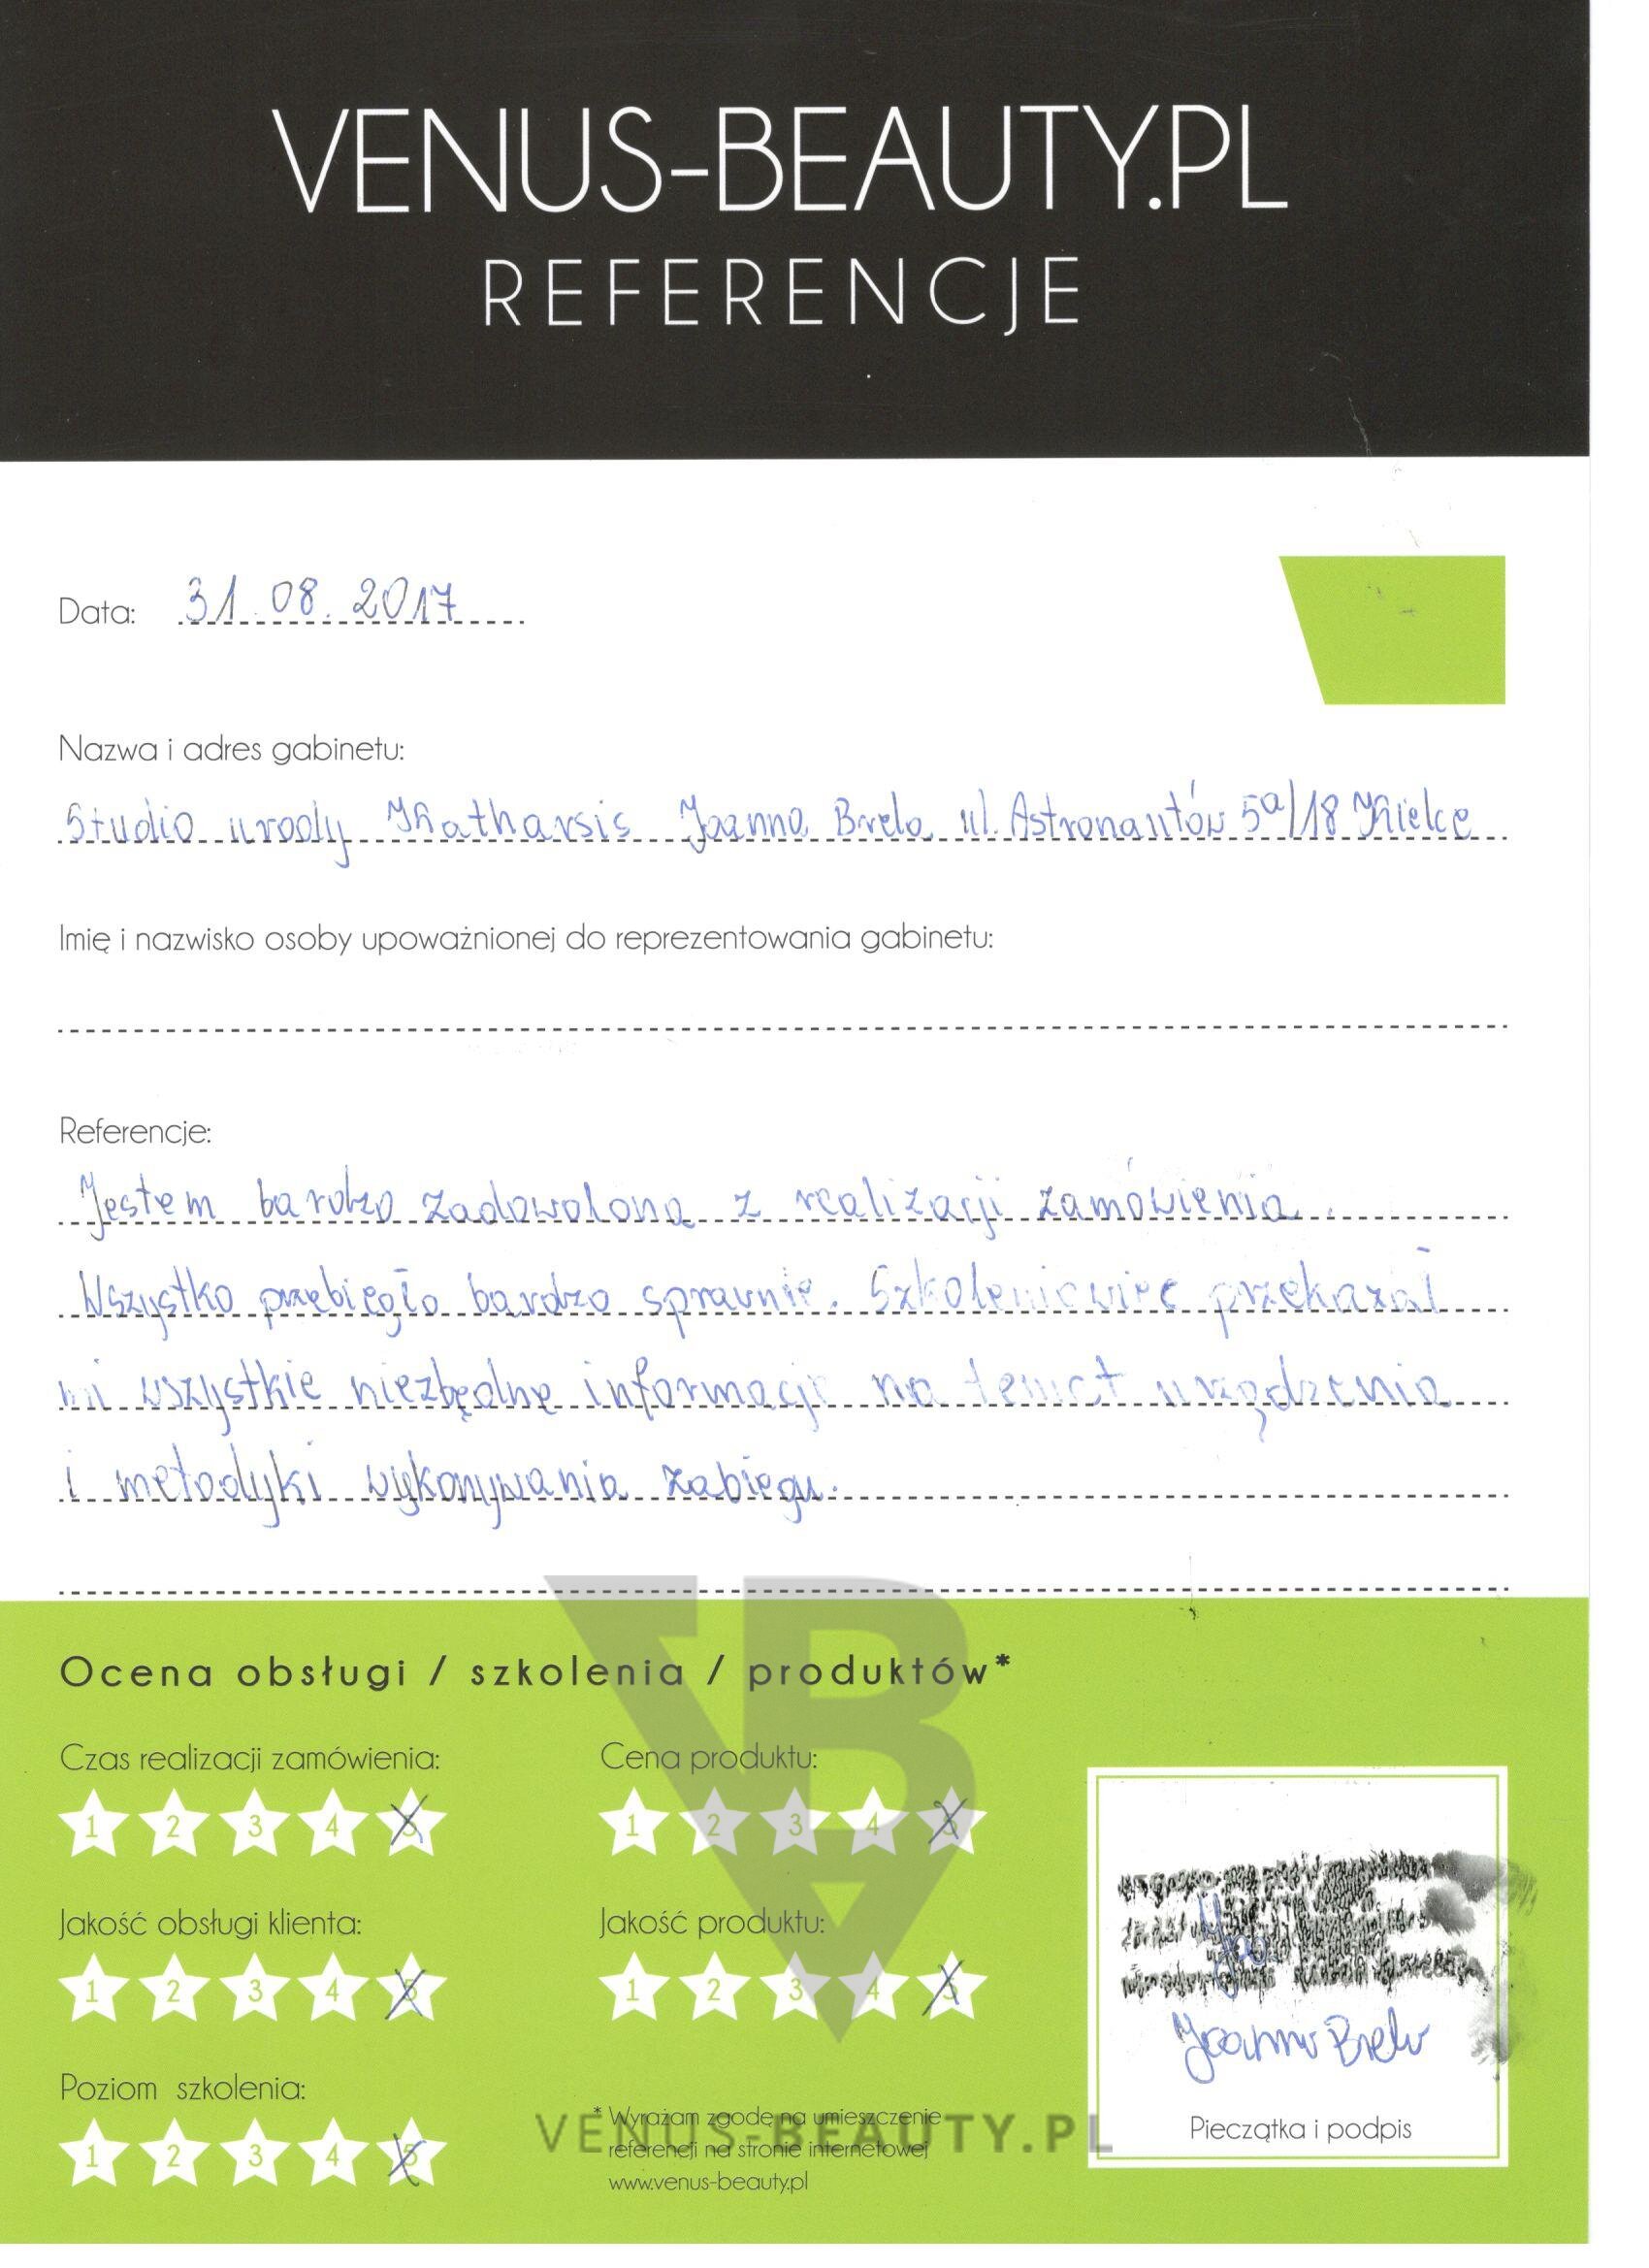 VENUS-BEAUTY.PL
REFERENCJE
Data: 31.08.2017
Nazwa i adres gabinetu:
Studio urody Katharsis Joanna Brela ul. Astronautów 5a/18 Kielce
Imię i nazwisko osoby upoważnionej do reprezentowania gabinetu:
Referencje:
Jestem bardzo zadowolona z realizacji zamówienia.
Wszystko przebiegło bardzo sprawnie. Szkoleniowiec przekazał
mi wszystkie niezbędne informacje na temat urządzenia
i metodyki wykonywania zabiegu.
Ocena obsługi / szkolenia / produktów*
Czas realizacji zamówienia:
1 2 3 4 5
Cena produktu:
1 2 3 4 5
Jakość obsługi klienta:
1 2 3 4 5
Jakość produktu:
1 2 3 4 5
Poziom szkolenia:
1 2 3 4 5
* Wyrażam zgodę na umieszczenie
referencji na stronie internetowej
www.venus-beauty.pl
VENUS-BEAUTY.PL
Joanna Brela
Pieczątka i podpis